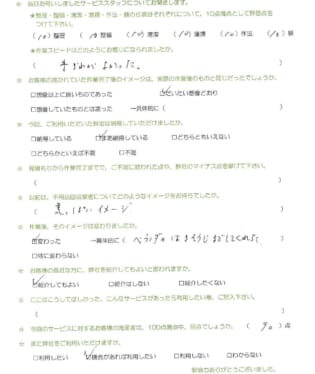 ☆ 当日お伺いしましたサービススタッフについてお聞きします。
★整理・整頓・清潔・清掃・作法・躾の6項目それぞれについて、10点満点として評価点をつけて下さい。
(10) 整理 (10) 整頓 (10) 清潔 (10) 清掃 (10) 作法 (10) 躾
★作業スピードはどのようにお感じになられましたか。
( 手ぎわがよかった。 )
☆ お客様の思われていた作業完了後のイメージは、実際の作業後のものと同じだったでしょうか。
□想像以上に良いものであった ☑だいたい想像どおり
□想像していたものとは違った →具体的に ( )
☆ 今回、ご利用いただいた料金は納得していただけましたか。
□納得している ☑まあ納得している □どちらともいえない
□どちらかといえば不満 □不満
☆ 見積もりから作業完了までで、ご不満に思われた点や、弊社のマイナス点を挙げて下さい。
( )
☆ 以前は、不用品回収業者についてどのようなイメージをお持ちでしたか。
( 悪いイメージ )
☆ 作業後、そのイメージは変わりましたか。
☑変わった →具体的に ( ベランダのはきそうじまでしてくれた )
□特に変わらない
☆ お客様の身近な方に、弊社を紹介してもよいと思われますか。
☑紹介してもよい □紹介はしない □紹介したくない
☆ ここはこうしてほしかった、こんなサービスがあったら利用したい等、ご記入下さい。
( )
☆ 今回のサービスに対するお客様の満足度は、100点満点中、何点でしょうか。 ( 90 ) 点
☆ また弊社をご利用いただけますか。
□利用したい ☑機会があれば利用したい □利用しない □わからない
ご協力ありがとうございました。